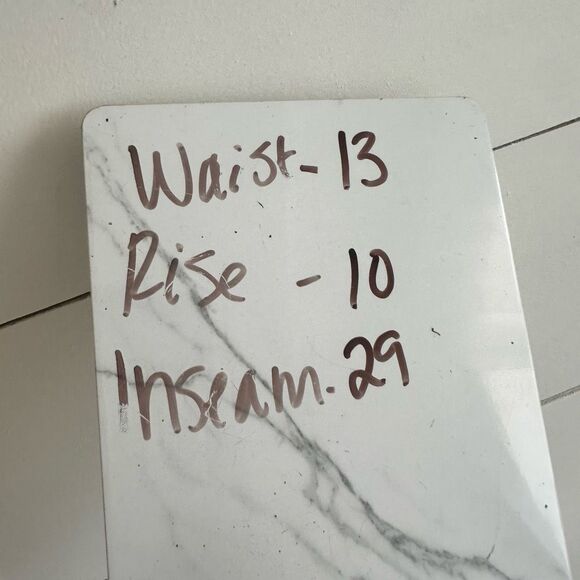 Waist - 13
Rise - 10
Inseam. 29